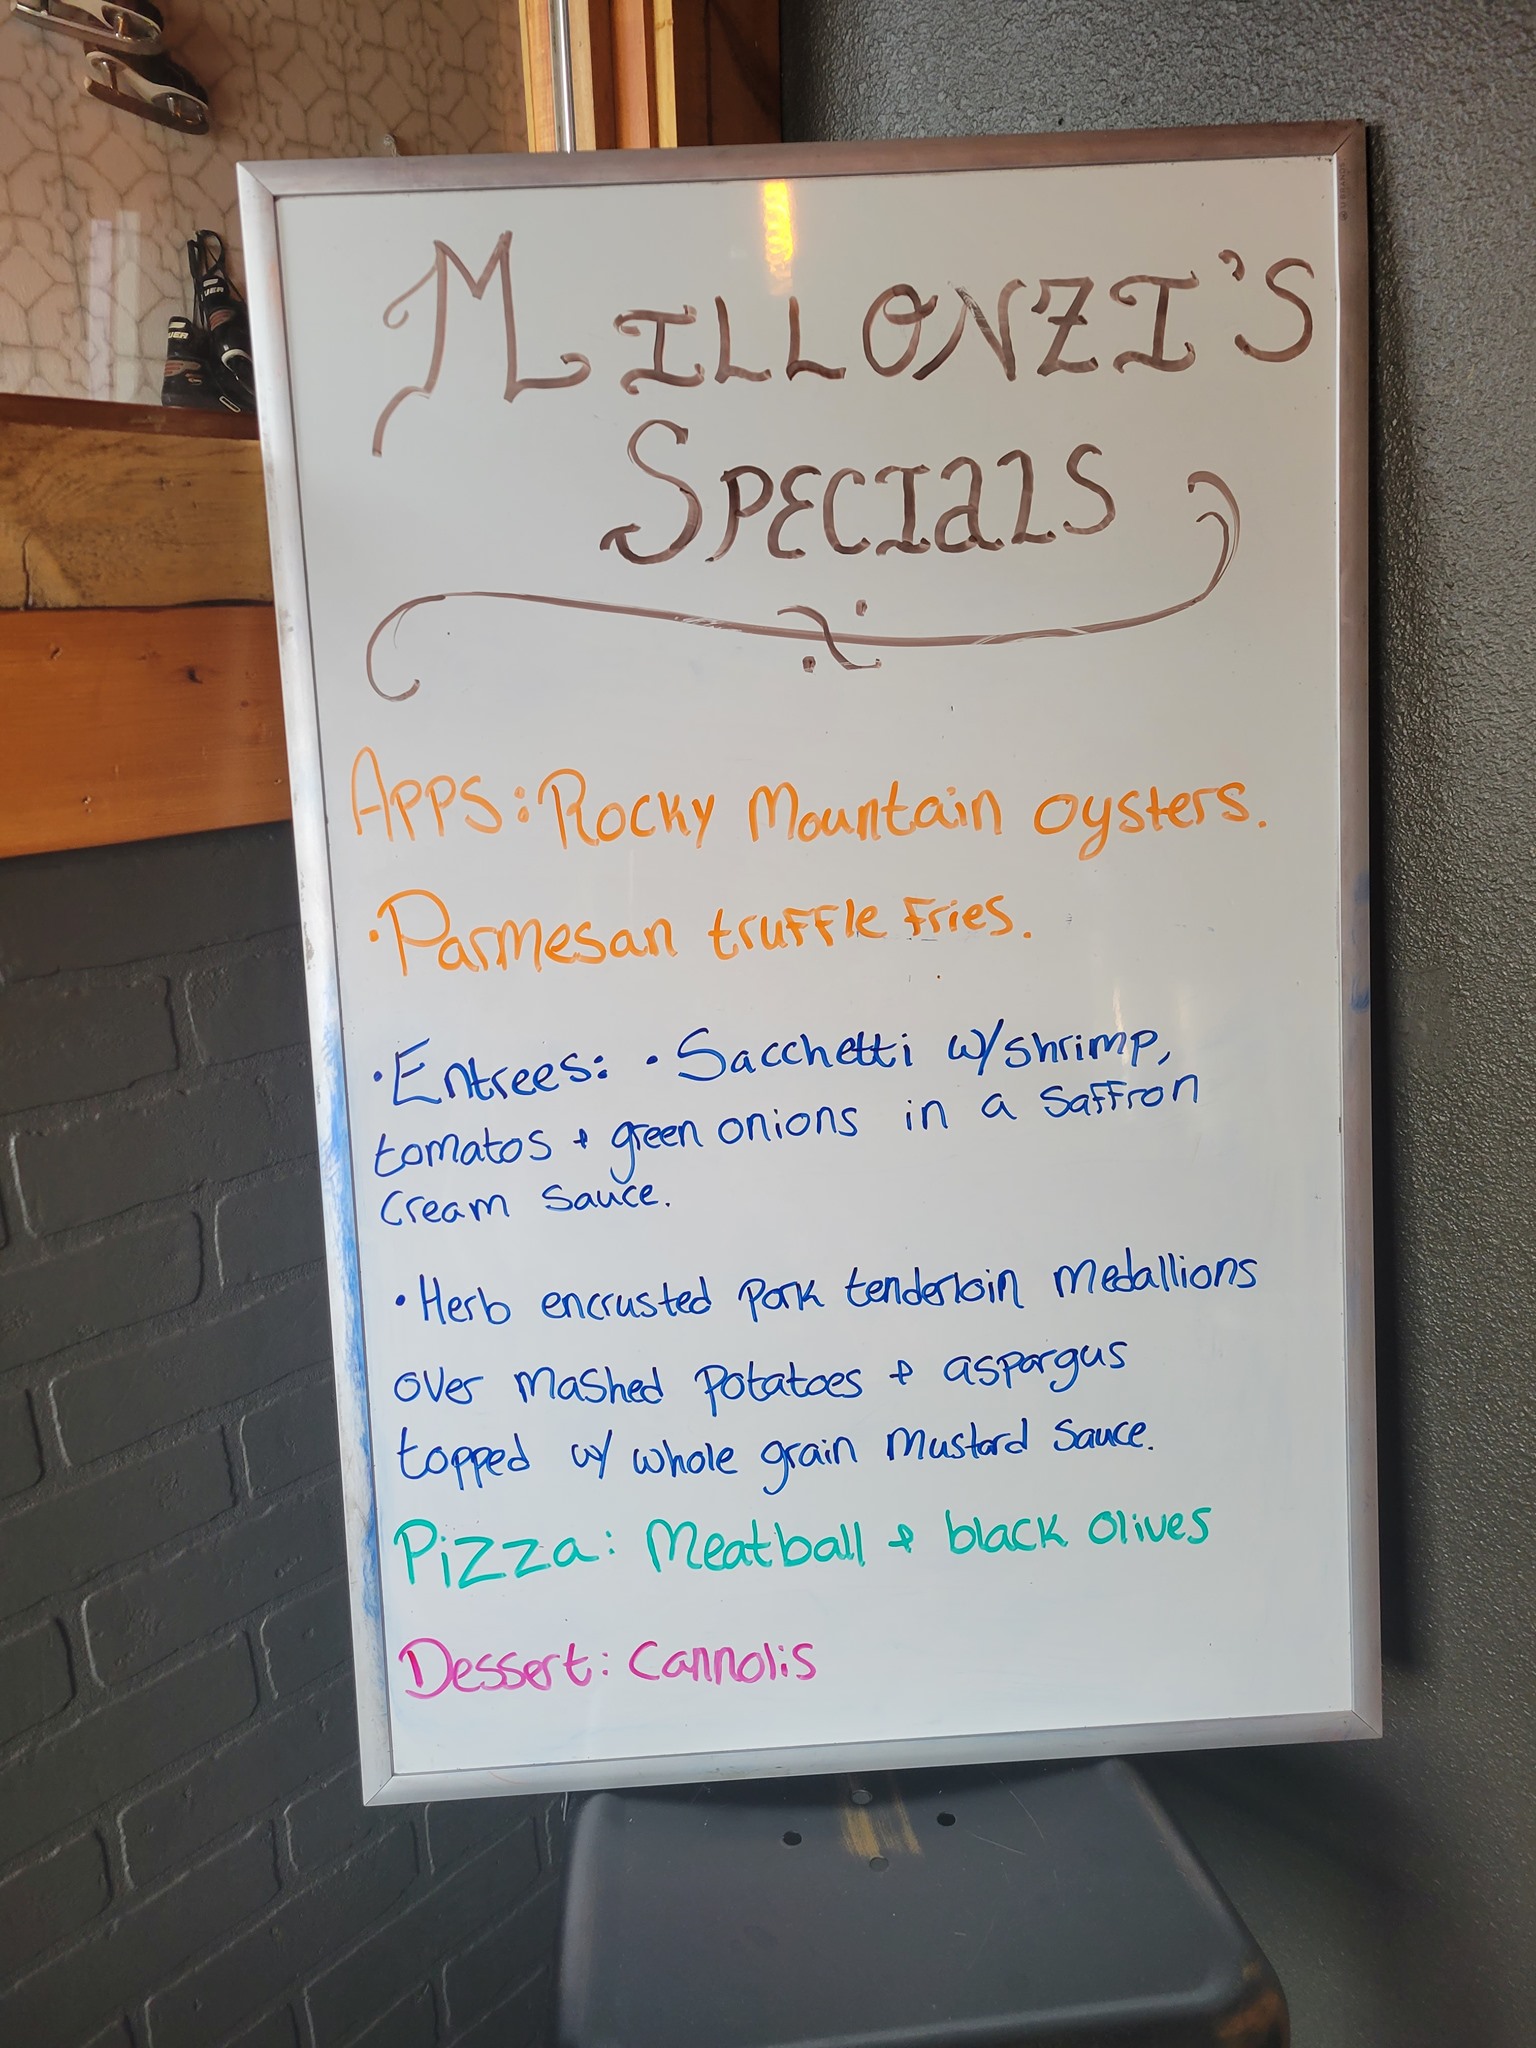 MILLONZI'S
SPECIALS
APPS: Rocky Mountain oysters.
• Parmesan truffle fries.
• Entrees: • Sacchetti w/shrimp,
tomatos + green onions in a saffron
cream sauce.
• Herb encrusted pork tenderloin medallions
over mashed potatoes + aspargus
topped w/ whole grain mustard sauce.
Pizza: Meatball + black olives
Dessert: Cannolis